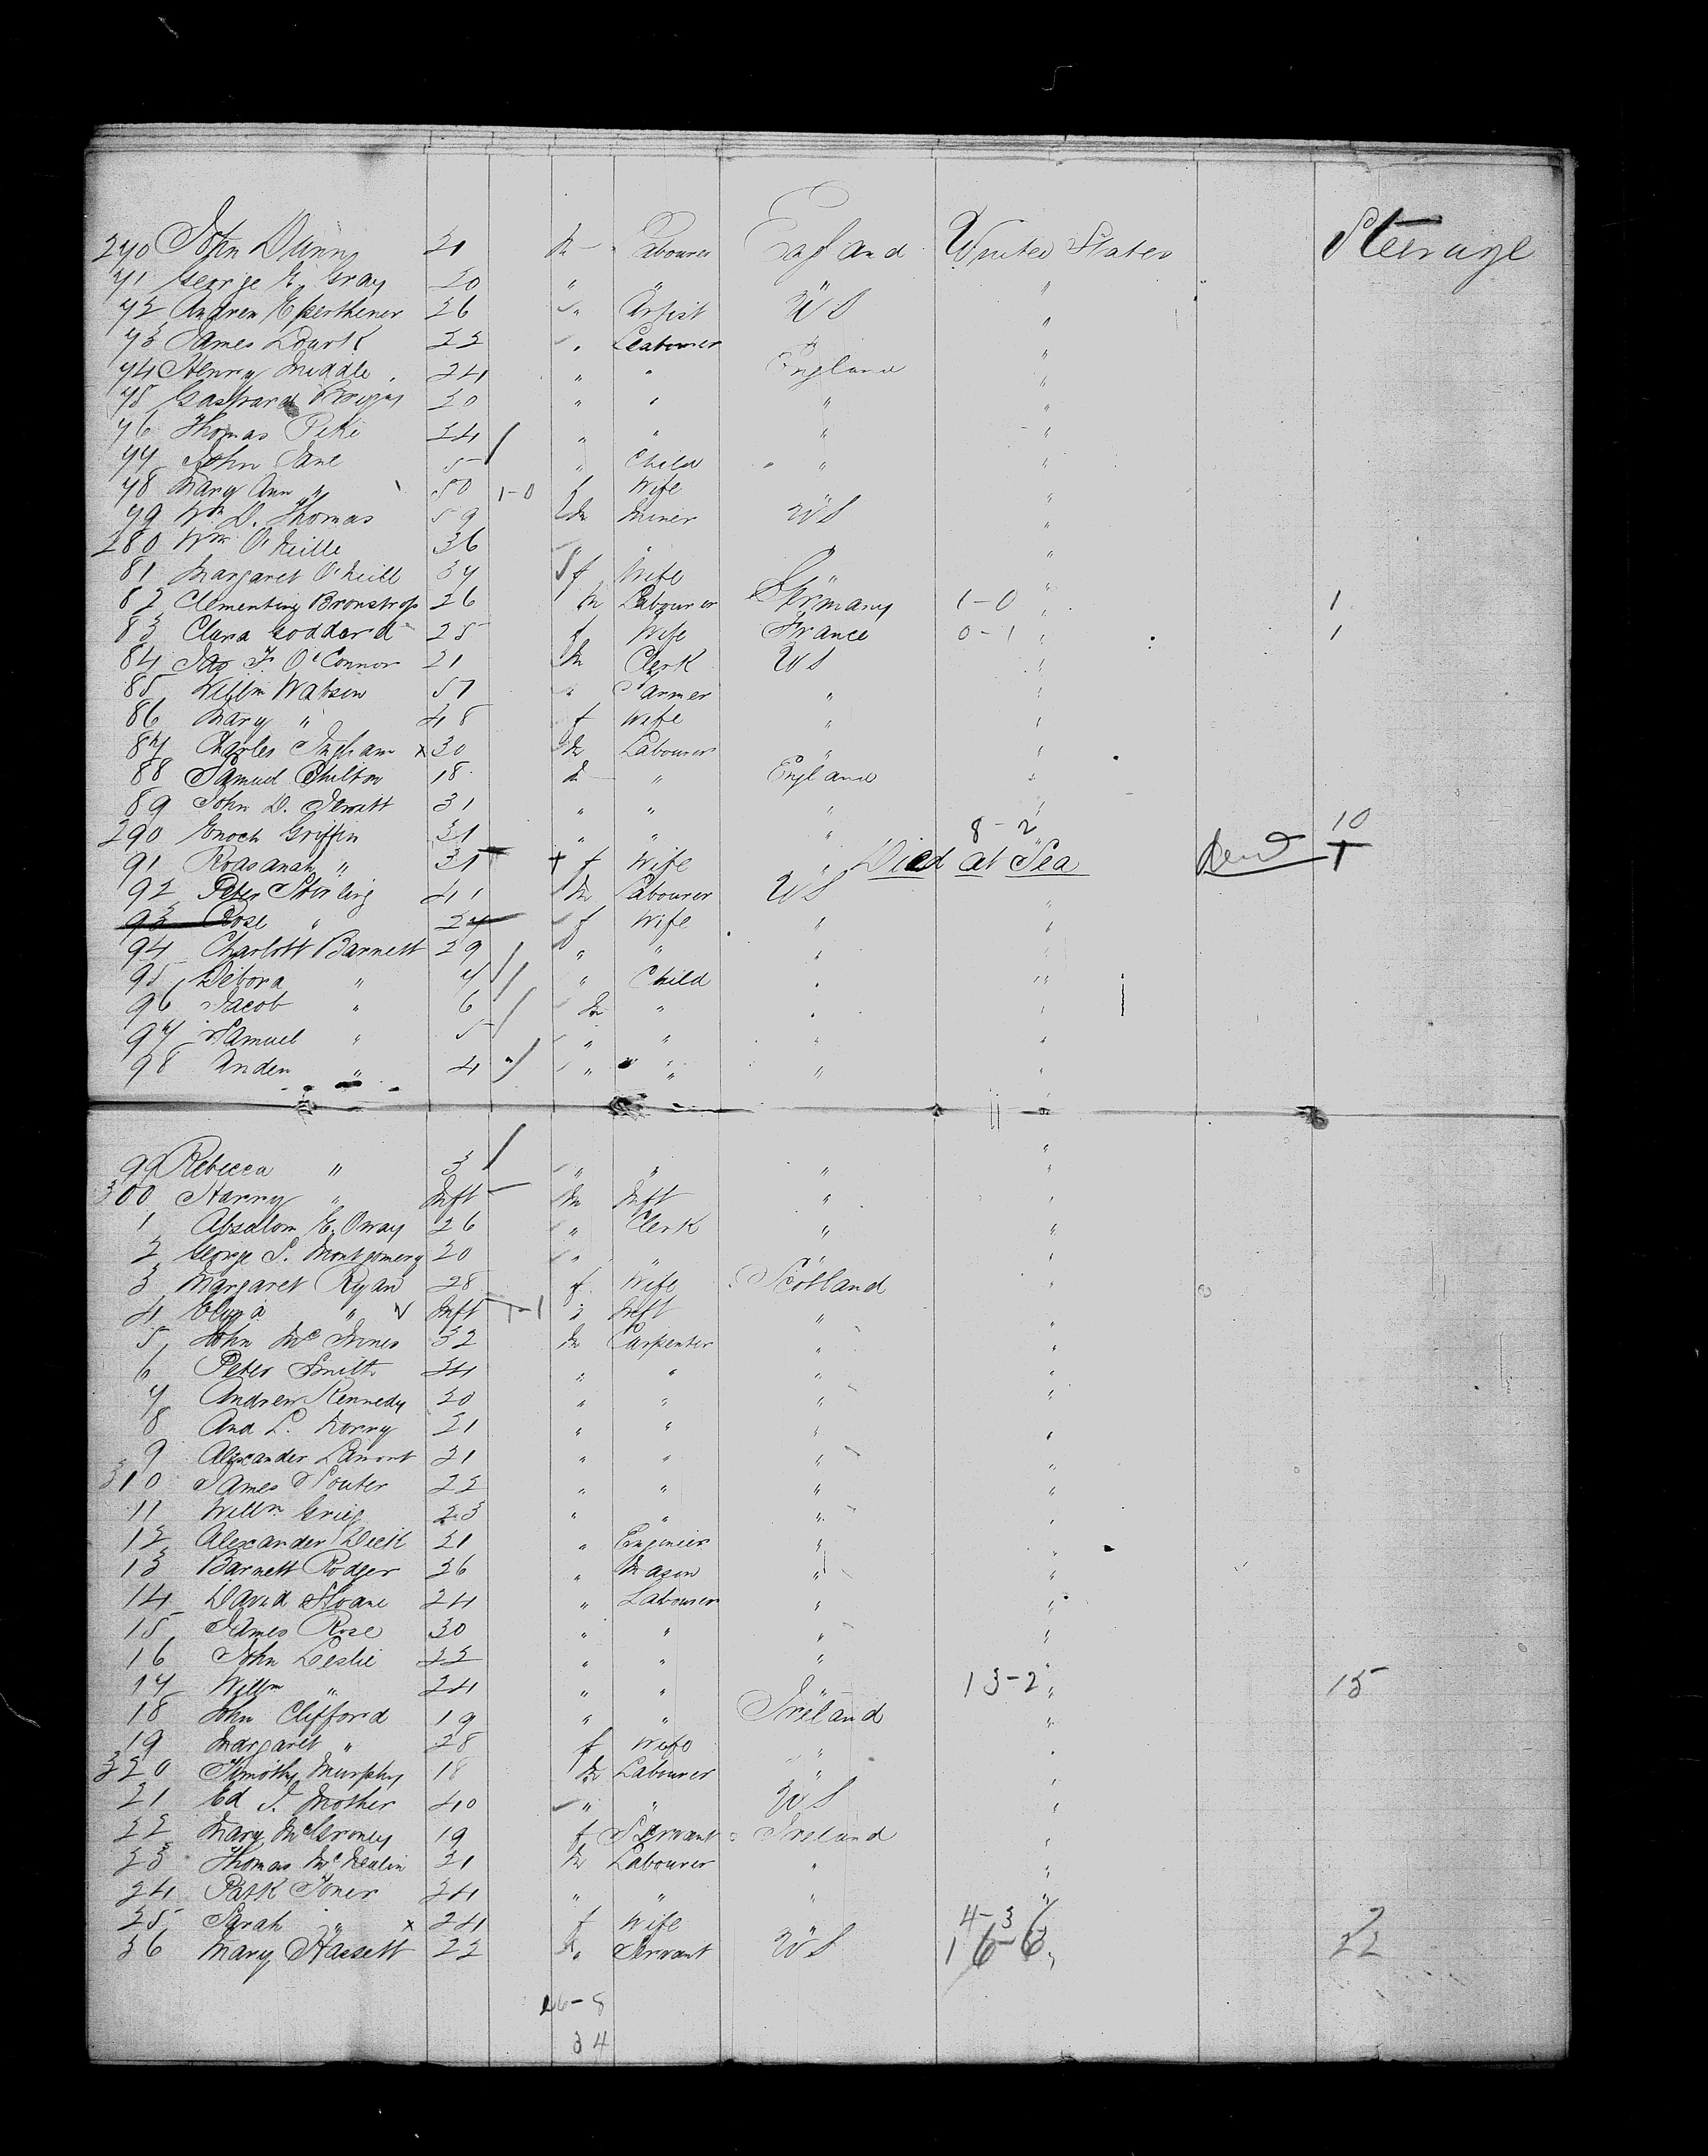 270 John Dunn 21 m Labourer England United States Steerage
71 George E. Gray 20 " " " "
72 Andrew 26 " Artist US "
73 James 22 " Leabourer " "
74 Henry Middle 24 " " England "
75 Briggs 20 " " " "
76 Thomas Pike 24 " " " "
77 John Jane 5 " Child " "
78 Mary Ann " 50 1-0 f Wife "
79 Wm D. Thomas 59 m Miner US "
280 Wm O'Neille 36 " " "
81 Margaret O'Neill 37 f Wife " "
82 26 m Labourer Germany 1-0 " 1
83 Clara Goddard 25 f Wife France 0-1 " 1
84 Jas F. O'Connor 21 m Clerk US "
85 Willm Watson 57 " Farmer " "
86 Mary " 48 f Wife " "
87 Charles Ingham x 30 m Labourer " "
88 Samuel Chilton 18 m " England "
89 John D. Jewitt 31 " " " "
290 Enoch Griffin 31 " " " 8-2 " 10
91 Roasanah " 31 + f Wife " Died at Sea Dead 1
92 Peter Stirling 41 m Labourer US "
93 Rose " 27 f Wife " "
94 Charlott Barnett 29 " " " "
95 Debora " 7 " Child " "
96 Jacob " 6 m " " "
97 Samuel " 5 " " " "
98 " 4 " " " "
99 Rebecca " 3 " " " "
300 Harry " Inft m Inft " "
1 Absalom E. Oway 26 " Clerk " "
2 George S. Montgomery 20 " " " "
3 Margaret Ryan 28 f Wife Scotland "
4 " Inft 1-1 " Inft " "
5 John McInnes 32 m Carpenter " "
6 Peter Smith 24 " " " "
7 Andrew Kennedy 20 " " " "
8 And L. 21 " " " "
9 Alexander Lamont 21 " " " "
310 James Souter 22 " " " "
11 Willm Grieg 23 " " " "
12 Alexander Dick 21 " Engineer " "
13 Barnett Rodger 26 " Mason " "
14 David Sloane 24 " Labourer " "
15 James Rose 30 " " " "
16 John Leslie 22 " " " "
17 Willm " 24 " " " 13-2 " 15
18 John Clifford 19 " " Ireland "
19 Margaret " 28 f Wife " "
320 Timothy Murphy 18 m Labourer " "
21 Ed J. Mother 40 " " US "
22 Mary 19 f Servant Ireland "
23 Thomas 21 m Labourer " "
24 Patk Toner 24 " " " "
25 Sarah " x 24 f Wife " 4-3 7
36 Mary Hassett 22 " Servant US 16-6 " 22
26-8
34